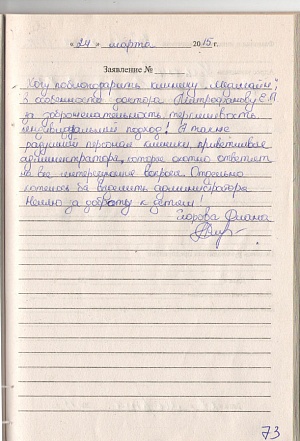 « 24 » марта 2015 г.
Заявление №
Хочу поблагодарить клинику
в особенности доктора Е.М
за доброжелательность, терпимость,
индивидуальный подход! А также
радушный персонал клиники, приветливого
администратора, которые охотно ответят
на все интересующие вопросы. Отдельно
хотелось бы выделить администратора
за доброту к детям!
Егорова Диана
73